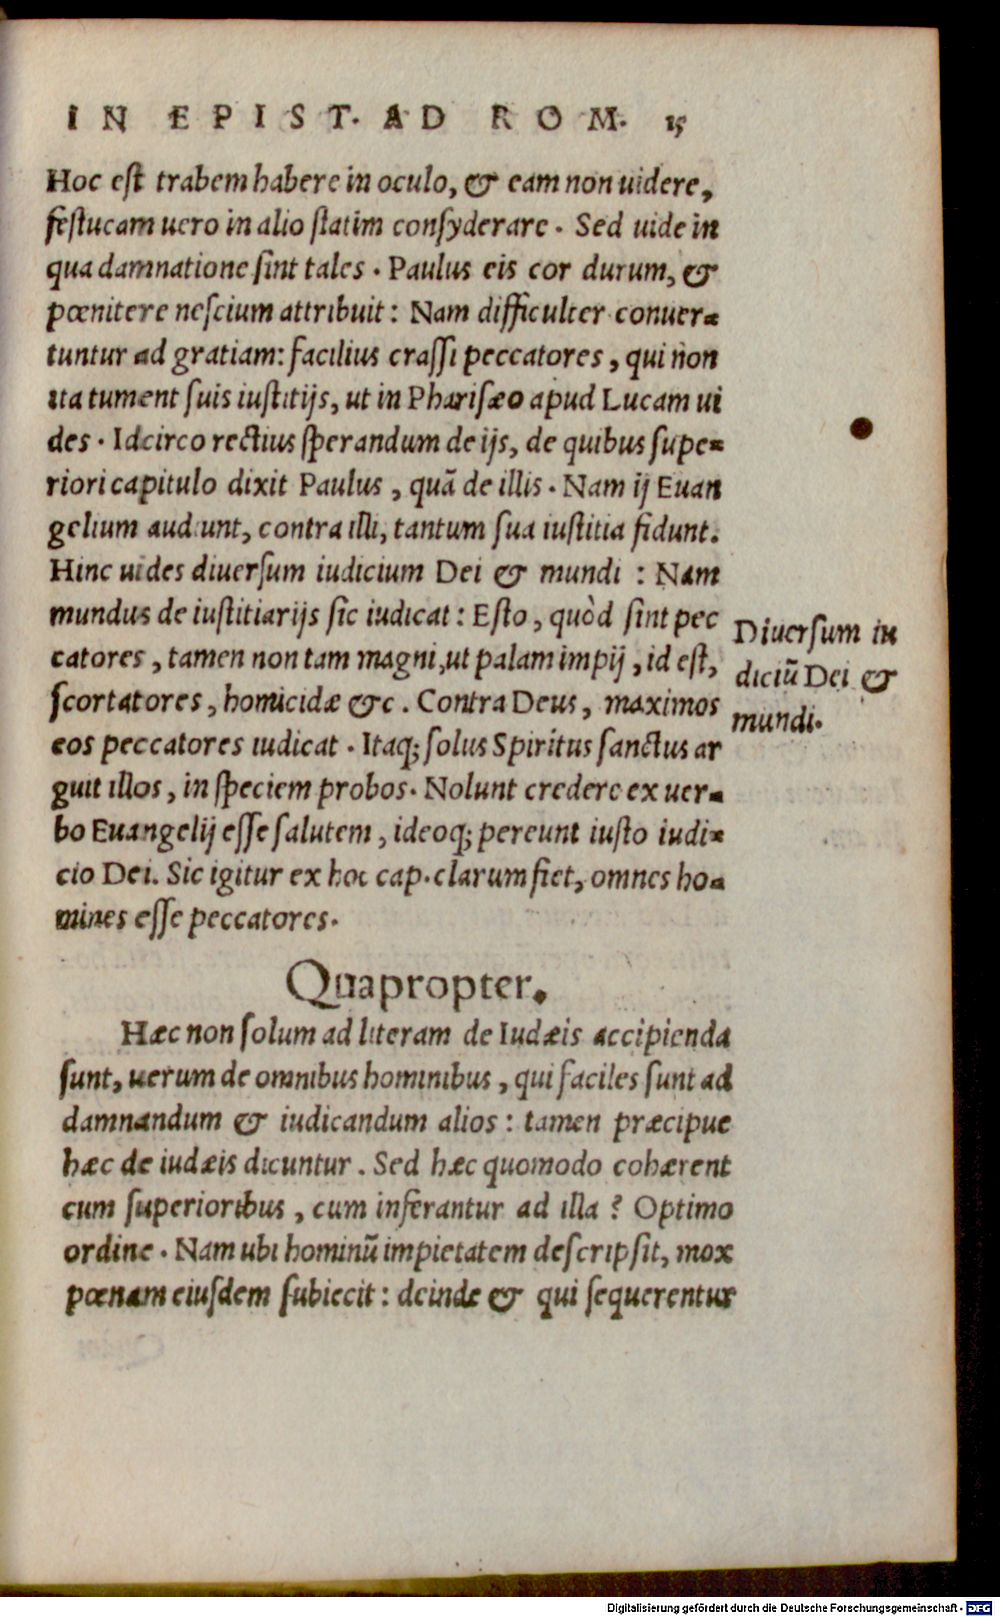 IN EPIST. AD ROM. 15
Hoc est trabem habere in oculo, & eam non uidere,
festucam uero in alio statim consyderare. Sed uide in
qua damnatione sint tales. Paulus eis cor durum, &
pœnitere nescium attribuit: Nam difficulter conuer-
tuntur ad gratiam: facilius crassi peccatores, qui non
ita tument suis iustitijs, ut in Pharisæo apud Lucam ui
des. Idcirco rectius sperandum de ijs, de quibus supe-
riori capitulo dixit Paulus, quā de illis. Nam ij Euan
gelium audiunt, contra illi, tantum sua iustitia fidunt.
Hinc uides diuersum iudicium Dei & mundi : Nam
mundus de iustitiarijs sic iudicat: Esto, quòd sint pec
catores, tamen non tam magni, ut palam impij, id est,
scortatores, homicidæ &c. Contra Deus, maximos
eos peccatores iudicat. Itaq; solus Spiritus sanctus ar
guit illos, in speciem probos. Nolunt credere ex uer-
bo Euangelij esse salutem, ideoq; pereunt iusto iudi-
cio Dei. Sic igitur ex hoc cap. clarum fiet, omnes ho-
mines esse peccatores.
Diuersum iu
diciū Dei &
mundi.
Quapropter.
Hæc non solum ad literam de Iudæis accipienda
sunt, uerum de omnibus hominibus, qui faciles sunt ad
damnandum & iudicandum alios: tamen præcipue
hæc de iudæis dicuntur. Sed hæc quomodo cohærent
cum superioribus, cum inferantur ad illa? Optimo
ordine. Nam ubi hominū impietatem descripsit, mox
pœnam eiusdem subiecit: deinde & qui sequerentur
Digitalisierung gefördert durch die Deutsche Forschungsgemeinschaft - DFG